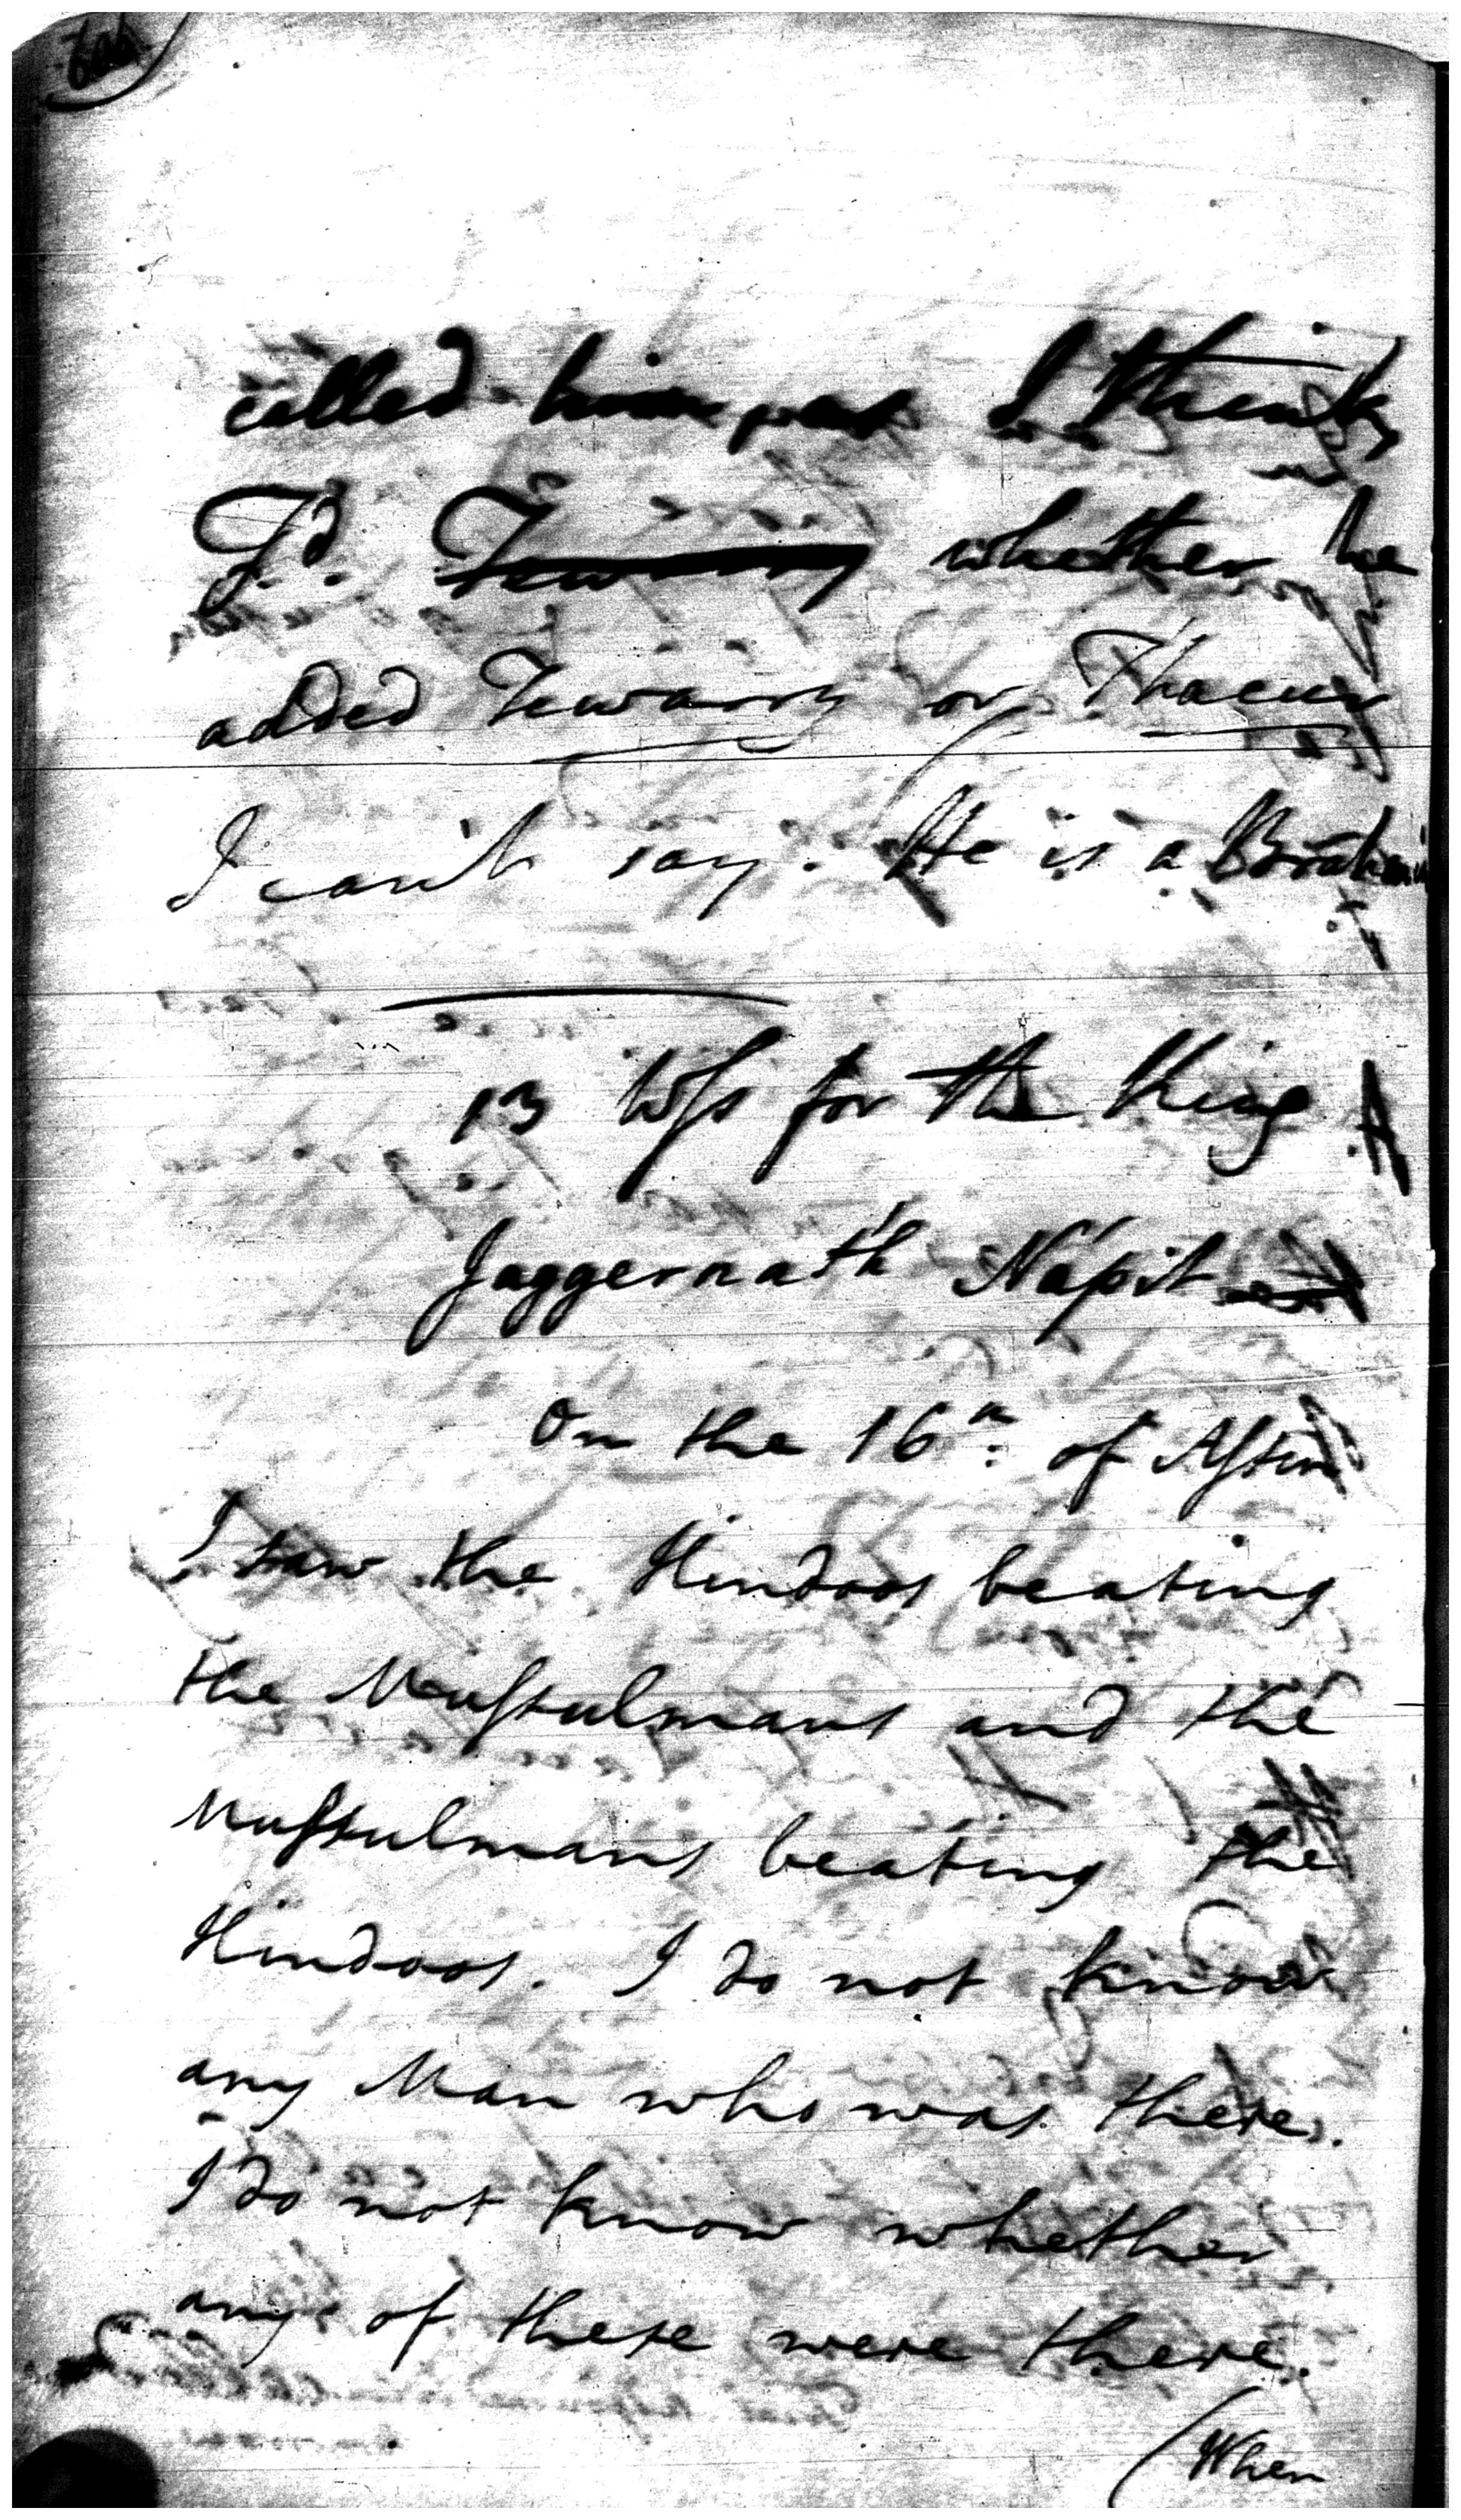 called him was I think
Jd. Tewarry whether he
added Tewarry or Thacur
I can't say. He is a Brahmin
13 Wss for the King
Jaggernath Nápit
On the 16th. of Assin
I saw the Hindoos beating
the Mussulmans and the
Mussulmans beating the
Hindoos. I do not know
any Man who was there.
I do not know whether
any of these were there.
(When